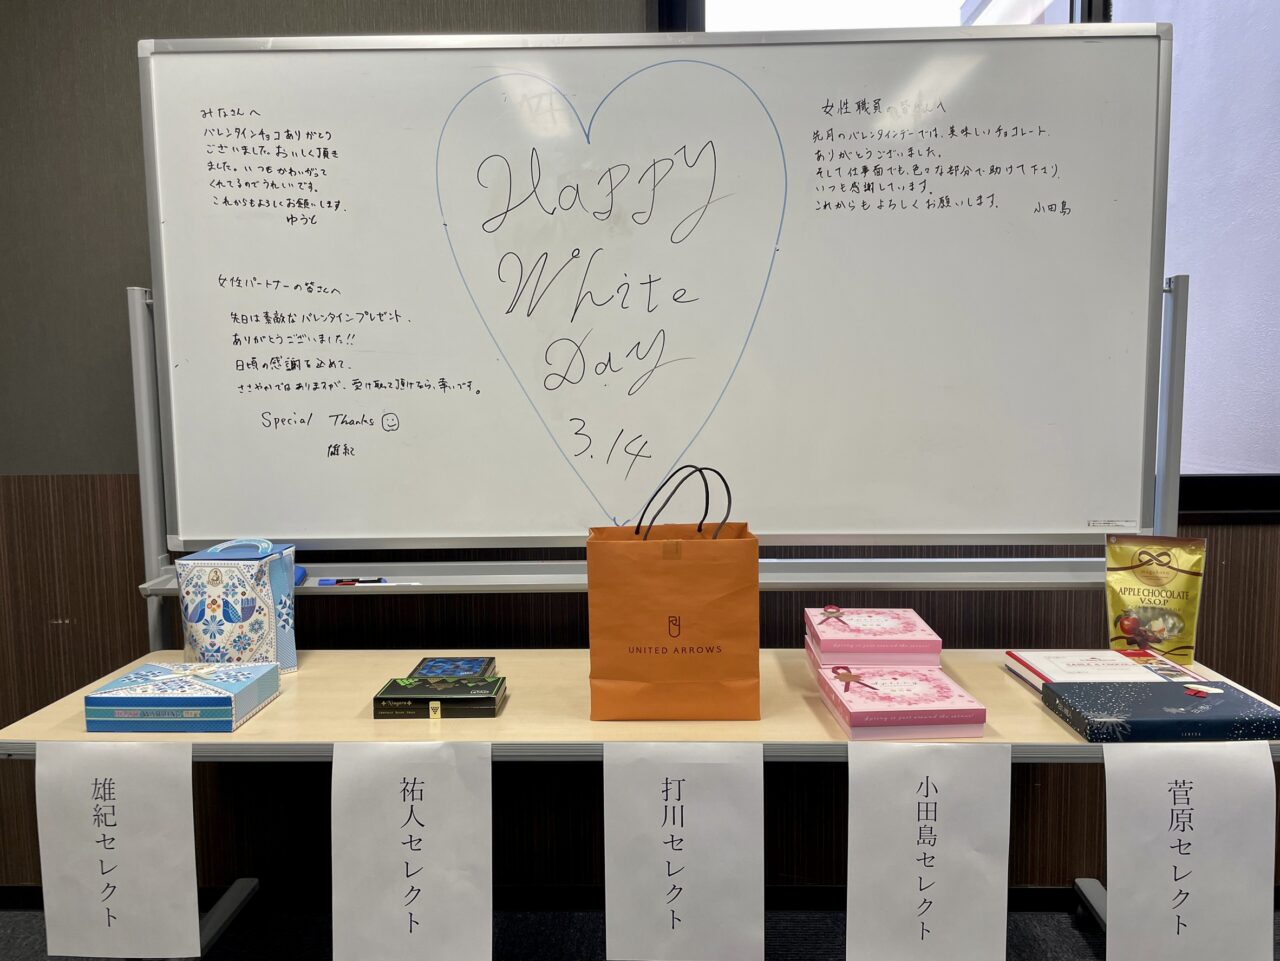 みなさんへ
バレンタインチョコありがとう
ございました。おいしく頂き
ました。いつもかわいがって
くれてるのでうれしいです。
これからもよろしくお願いします。
ゆうと
女性パートナーの皆さんへ
先日は素敵なバレンタインプレゼント、
ありがとうございました!!
日頃の感謝を込めて、
ささやかではありますが、受け取って頂けるなら、幸いです。
Special Thanks
雄紀
Happy
White
Day
3.14
女性職員の皆さんへ
先月のバレンタインデーでは、美味しいチョコレート
ありがとうございました。
そして仕事面でも、色々な部分で助けて下さり、
いつも感謝しています。
これからもよろしくお願いします。
小田島
UNITED ARROWS
Niagara
Spring is just around the corner!
APPLE CHOCOLATE
V.S.O.P
雄紀セレクト
祐人セレクト
打川セレクト
小田島セレクト
菅原セレクト